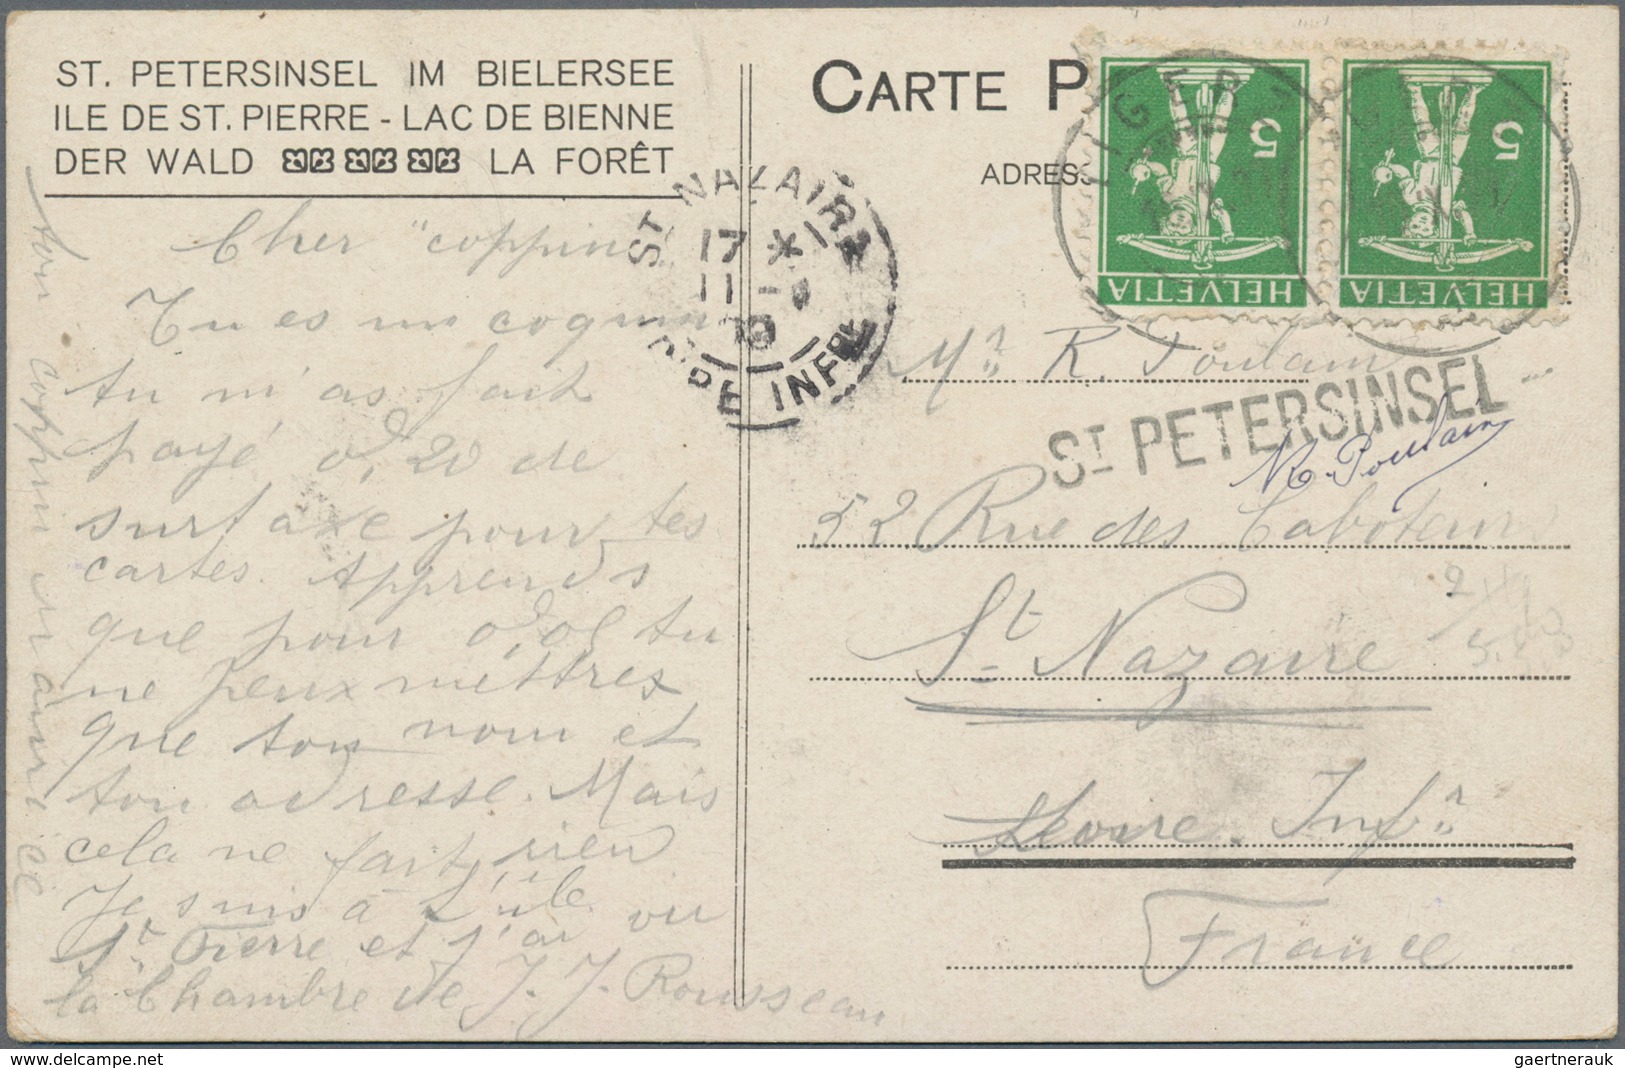 ST. PETERSINSEL IM BIELERSEE
ILE DE ST. PIERRE - LAC DE BIENNE
DER WALD LA FORÊT
CARTE P
ADRES
5
5
HELVETIA
HELVETIA
LIGERZ
ST NAZAIRE
17 *
11 -
INFRE
ST PETERSINSEL
Cher "coppin
Tu es un coquin
tu m'as fait
payé 0,20 de
surtaxe pour tes
cartes. Apprends
que pour 0,05 tu
ne peux mettres
que ton nom et
ton adresse. Mais
cela ne fait rien
Je suis à l'île ou
St Pierre et j'ai vu
la Chambre de J. J. Rousseau
ton coppin Maurice
Mr R. Poulain
R. Poulain
52 Rue des Caboteurs
St Nazaire
Loire-Infr
France
gaertnerauk @ delcampe.net